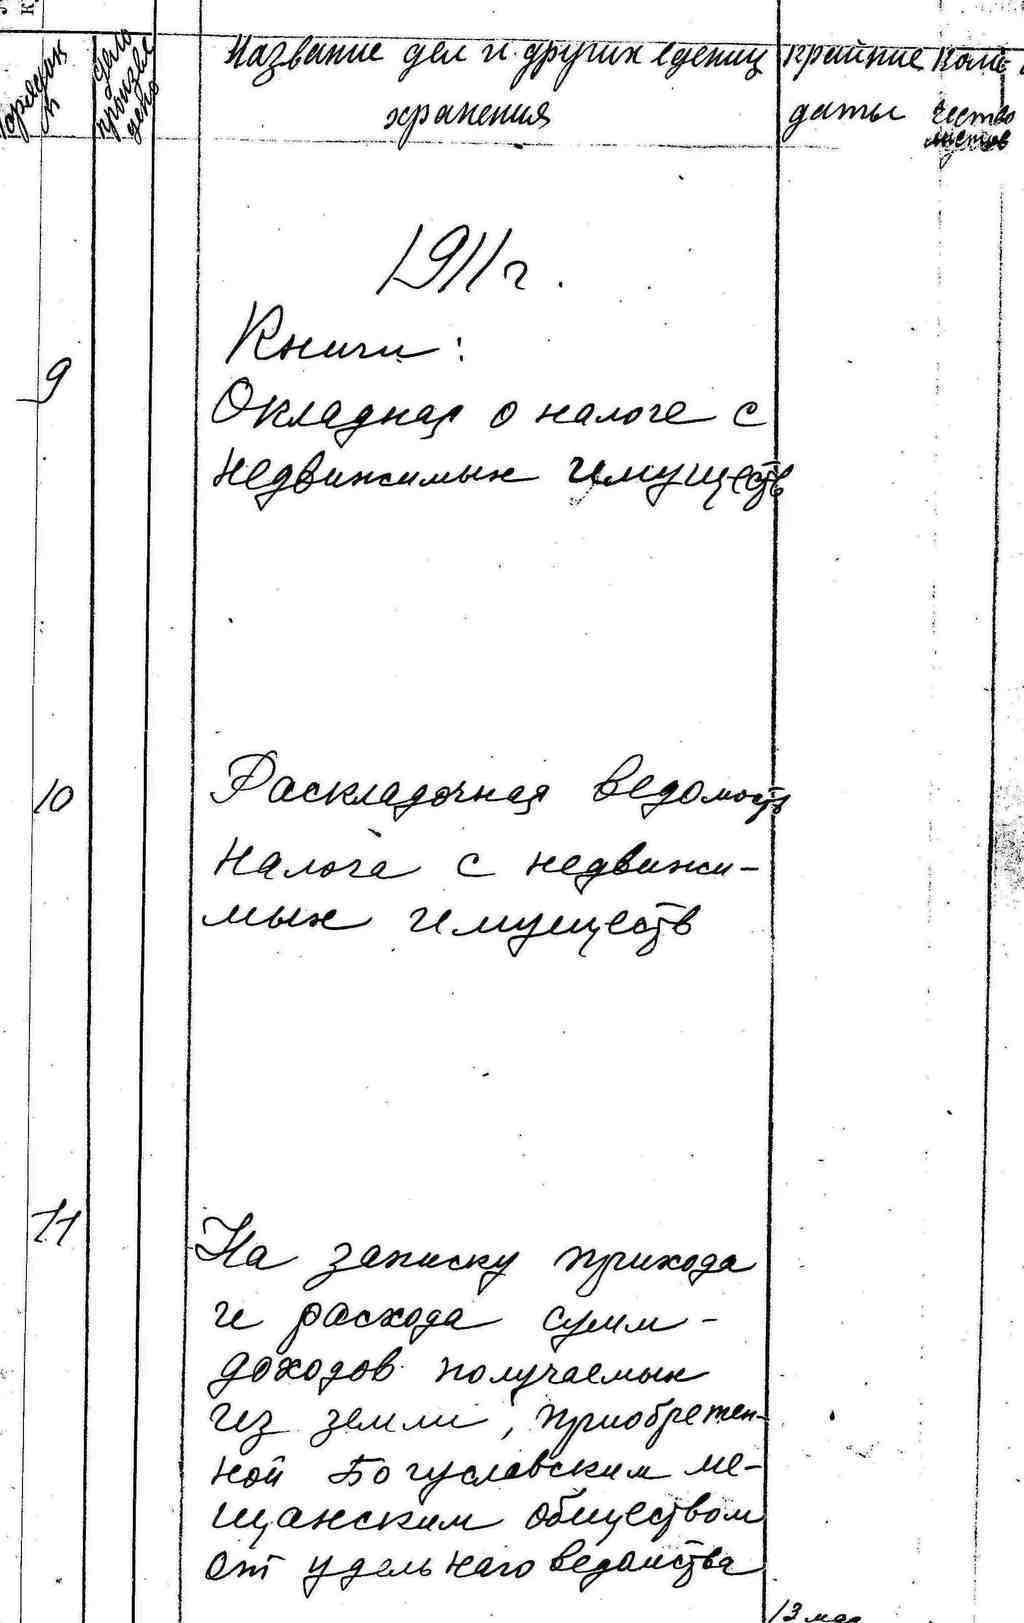 Порядок № Дело произведено Название дел и других единиц хранения Крайние даты Количество листов
1911 г.
9
Книги:
Окладная о налоге с
недвижимых имуществ
10
Раскладочная ведомость
налога с недвижи-
мых имуществ
11
На записку прихода
и расхода сумм -
доходов получаемых
из земли, приобретен-
ной Богуславским ме-
щанским обществом
от удельнаго ведомства
13 мая